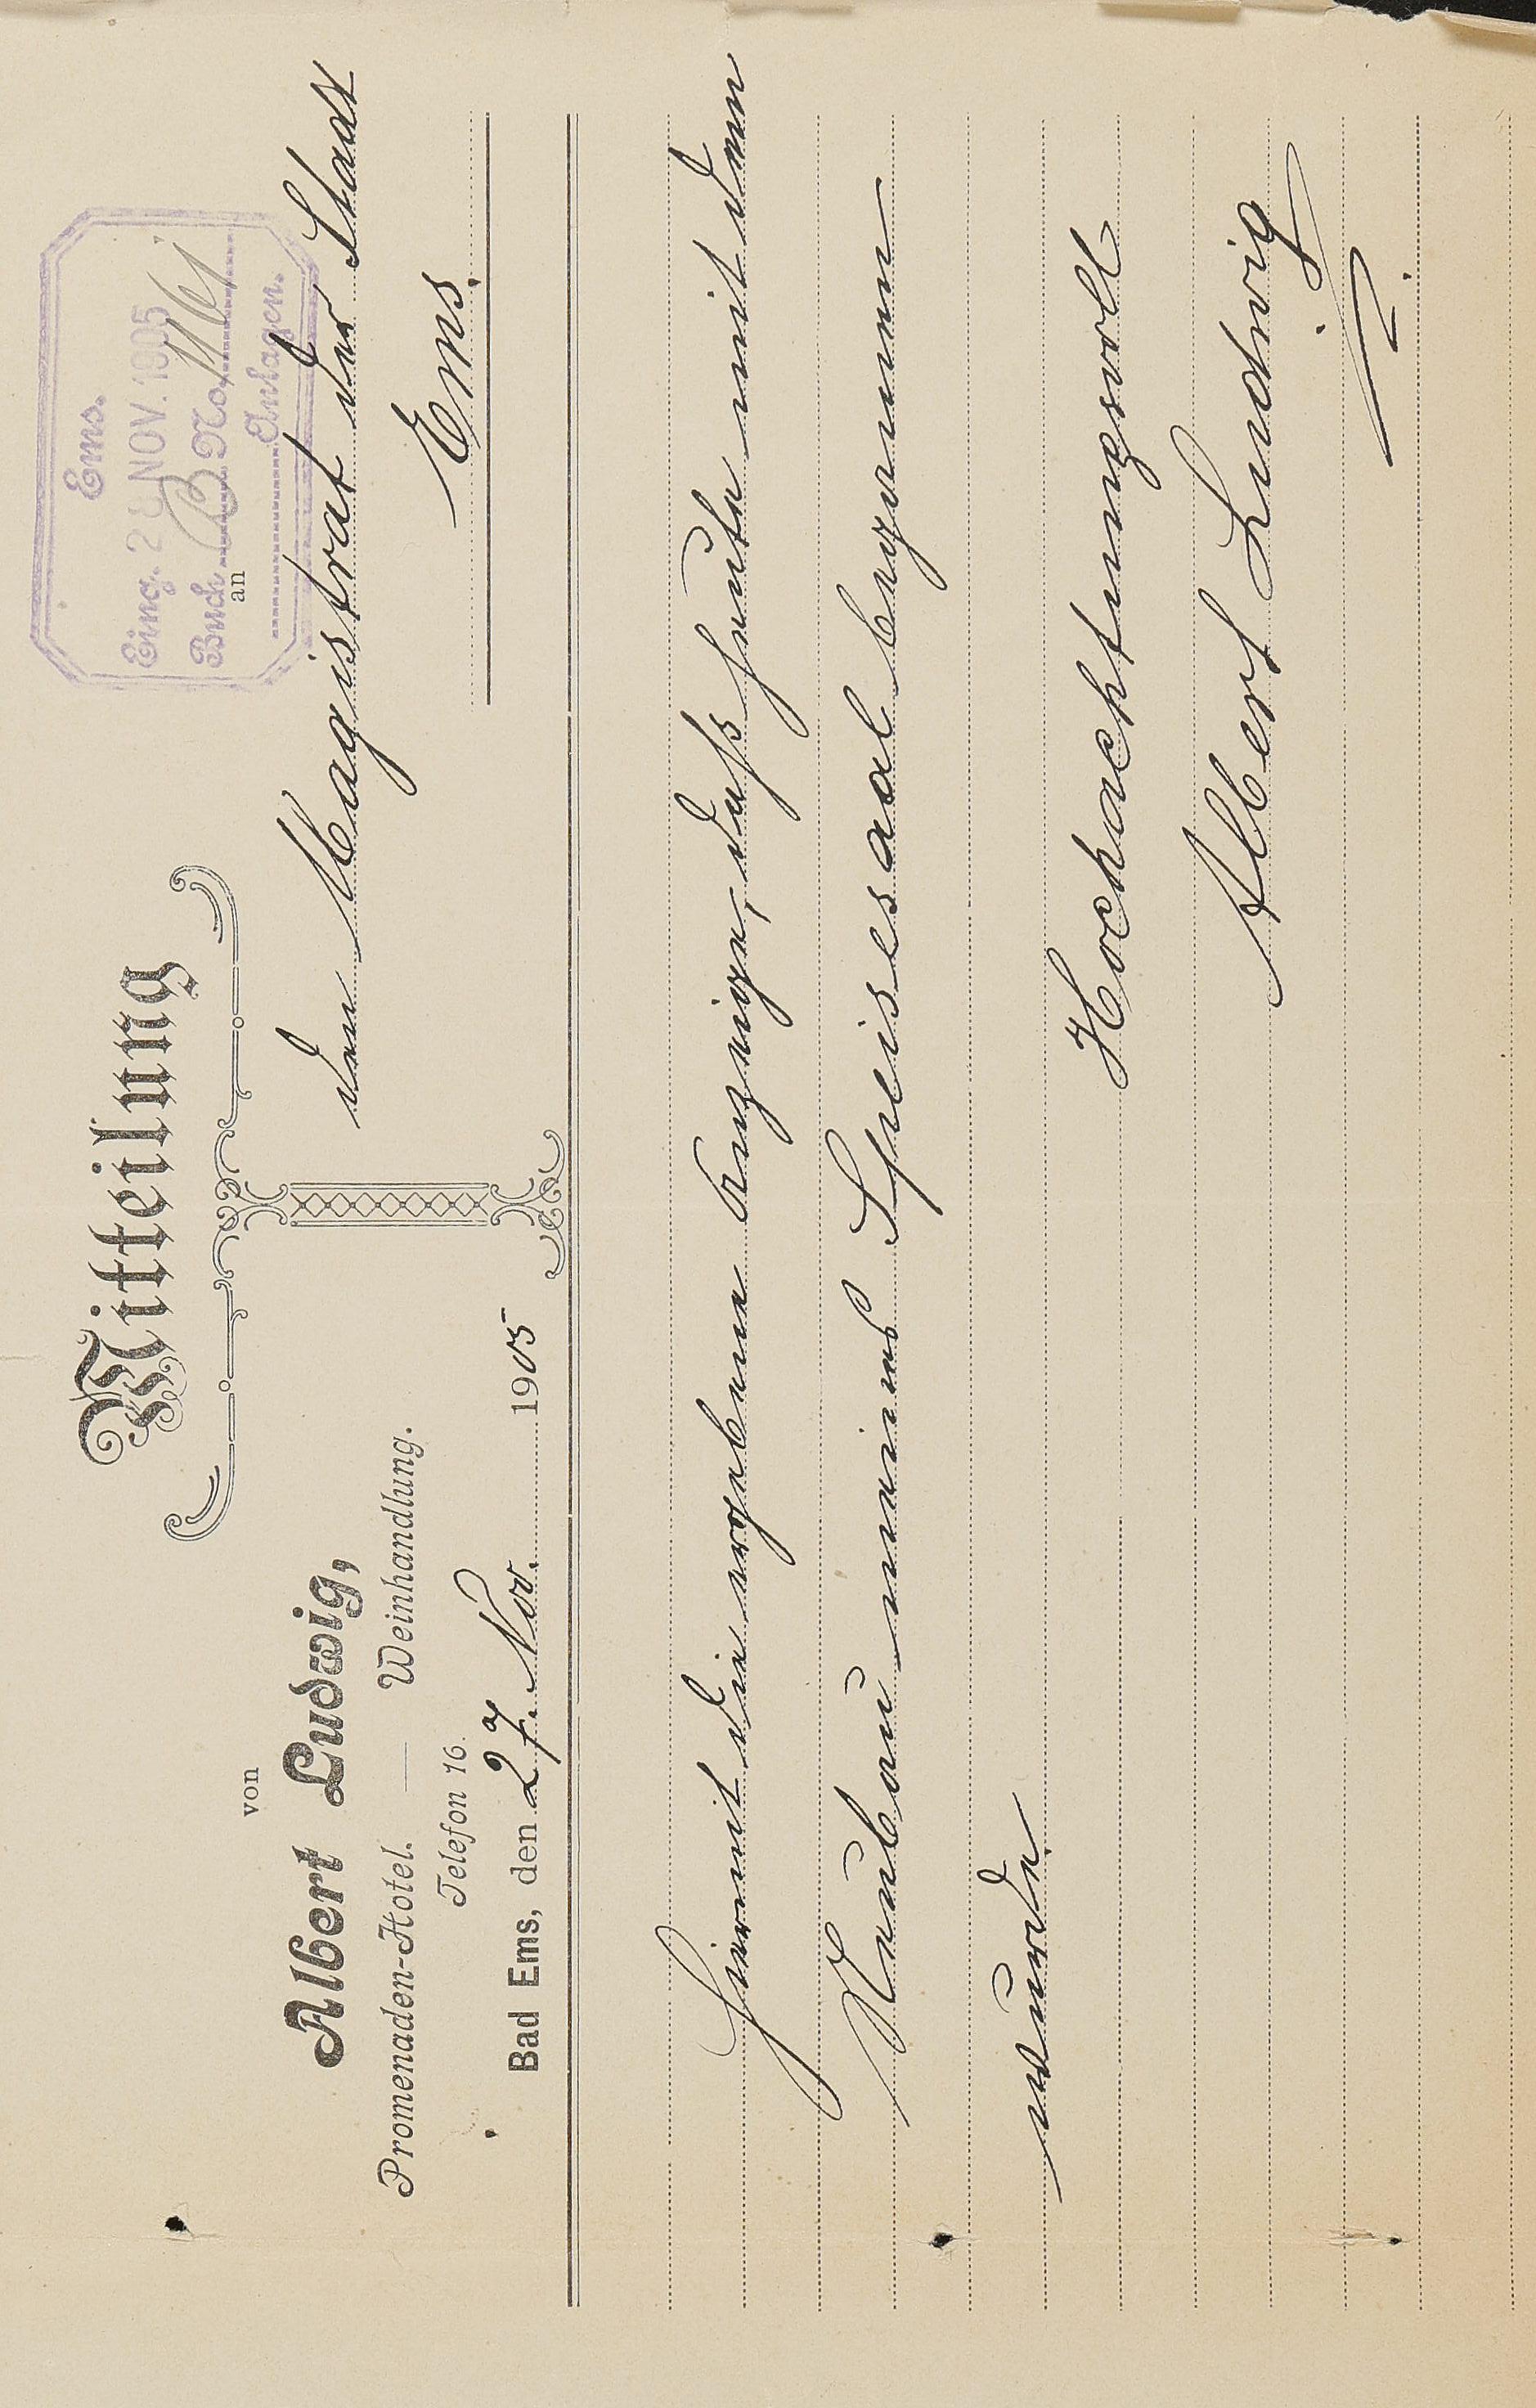 Mitteilung
von
Albert Ludwig,
Promenaden-Hotel. — Weinhandlung.
Telefon 16.
Bad Ems, den 27. Nov. 1905
Ems.
Eing. 28 NOV. 1905
Buch B No 1161
Anlagen.
an
den Magistrat der Stadt
Ems.
Hiermit die ergebene Anzeige, daß heute mit dem
Neubau meines Speisesaal begonnen
wurde.
Hochachtungsvoll
Albert Ludwig